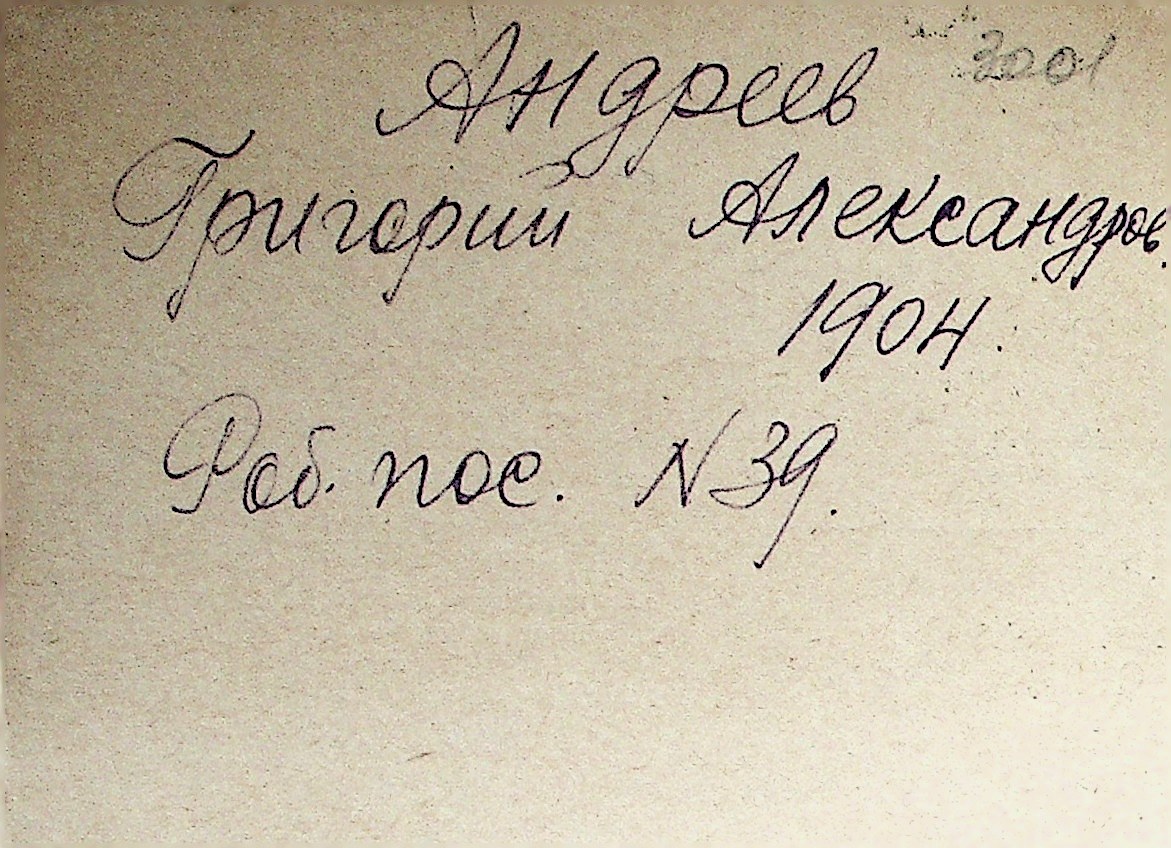 3001
Андреев
Григорий Александров.
1904.
Раб. пос. N 39.